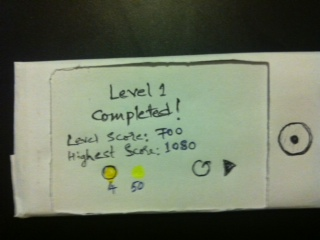 Level 1
Completed!
Level Score: 700
Highest Score: 1080
4 50